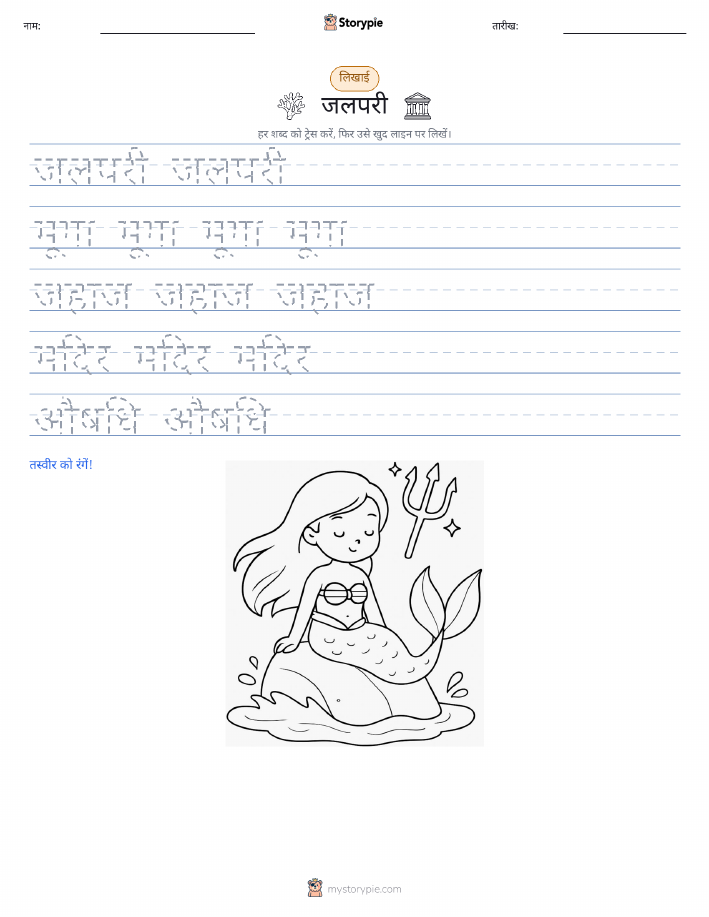 नाम:
Storypie
तारीख:
लिखाई
जलपरी
हर शब्द को ट्रेस करें, फिर उसे खुद लाइन पर लिखें।
जलपरी जलपरी
मूगा मूगा मूगा मूगा
जहाज जहाज जहाज
मंदिर मंदिर मंदिर
औषधि औषधि
तस्वीर को रंगें!
mystorypie.com